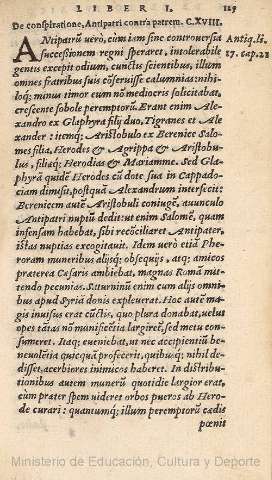 LIBER I. 129
De conspiratione, Antipatri contra patrem. C. XVIII.
ANtipatrũ uerò, cùm iam sine controuersia
successionem regni speraret, intolerabile
gentis excepit odium, cunctis scientibus, illum
omnes fratribus suis cõseruisse calumnias: nihi-
loq; minus timor eum nõ mediocris solicitabat,
crescente sobole peremptorũ. Erant enim Ale-
xandro ex Glaphyra filij duo, Tigranes et Ale
xander: itemq; Aristobulo ex Berenice Salo-
mes filia, Herodes & Agrippa & Aristobu-
lus, filiæq; Herodias & Mariamme. Sed Gla-
phyrã quidẽ Herodes cũ dote sua in Cappado-
ciam dimisit, postquã Alexandrum interfecit:
Berenicem autẽ Aristobuli coniugẽ, auunculo
Antipatri nuptũ dedit: ut enim Salomẽ, quam
infensam habebat, sibi recõciliaret Antipater,
istas nuptias excogitauit. Idem uerò etiã Phe-
roram muneribus alijsq; obsequijs, atq; amicos
præterea Cæsaris ambiebat, magnas Romã mit-
tendo pecunias. Saturninũ enim cum alijs omni
bus apud Syriã donis expleuerat. Hoc autẽ ma-
gis inuisus erat cũctis, quo plura donabat, uelut
opes tãtas nõ munificẽtia largirẽt, sed metu con-
sumeret. Itaq; eueniebat, ut nec accipientiũ be-
neuolẽtia quicquã profecerit, quibusq; nihil de-
disset, acerbiores inimicos haberet. In distribu-
tionibus autem munerũ quotidie largior erat,
cùm præter spem uideret orbos pueros ab Hero-
de curari: quantumq; illum peremptorũ cædis
pœnit
Antiq. li.
17. cap. 2
Ministerio de Educación, Cultura y Deporte